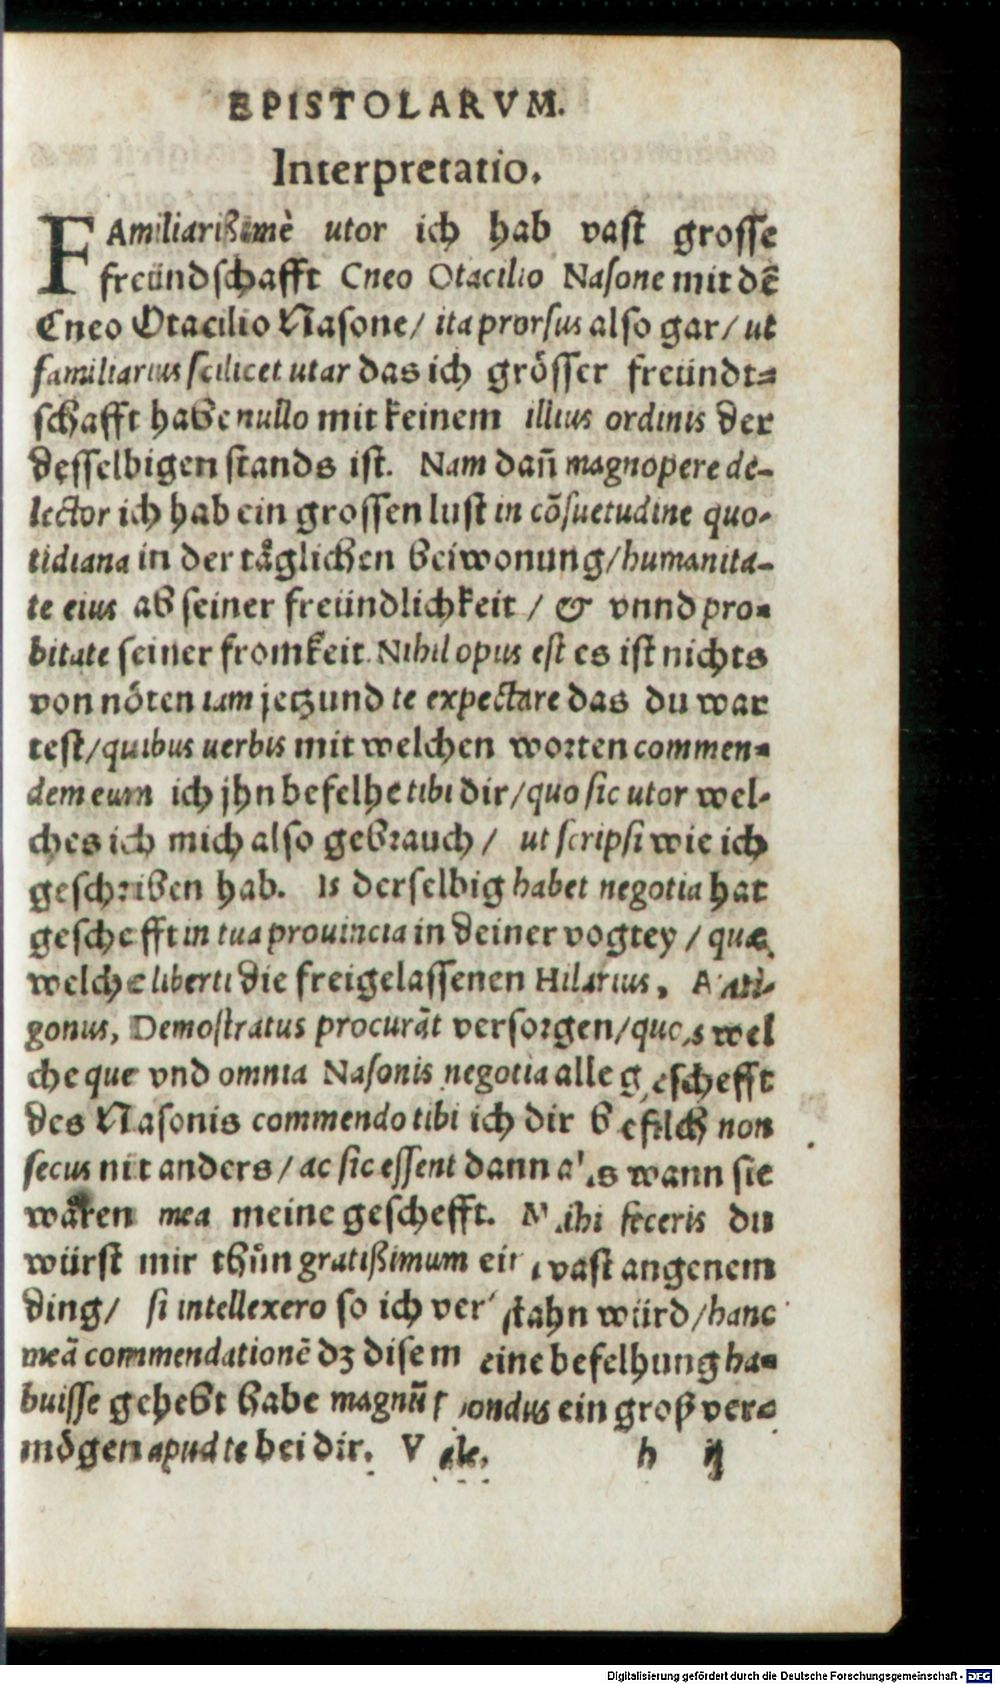 EPISTOLARVM.
Interpretatio.
FAmiliarißimè utor ich hab vast grosse
freündschafft Cneo Otacilio Nasone mit dē
Cneo Otacilio Nasone/ ita prorsus also gar/ ut
familiarius scilicet utar das ich grösser freündt-
schafft habe nullo mit keinem illius ordinis der
desselbigen stands ist. Nam dañ magnopere de-
lector ich hab ein grossen lust in cōsuetudine quo-
tidiana in der täglichen beiwonung/humanita-
te eius ab seiner freündlichkeit / & vnnd pro-
bitate seiner fromkeit. Nihil opus est es ist nichts
von nöten iam jetzund te expectare das du war
test/quibus uerbis mit welchen worten commen-
dem eum ich jhn befelhe tibi dir/quo sic utor wel-
ches ich mich also gebrauch / ut scripsi wie ich
geschriben hab. Is derselbig habet negotia hat
geschefft in tua prouincia in deiner vogtey / quæ
welche liberti die freigelassenen Hilarius, Anti-
gonus, Demostratus procurāt versorgen/quos wel
che que vnd omnia Nasonis negotia alle geschefft
des Nasonis commendo tibi ich dir befilch non
secus nit anders/ ac sic essent dann als wann sie
wären mea meine geschefft. Mihi feceris du
würst mir thůn gratißimum ein vast angenem
ding/ si intellexero so ich verstahn würd/hanc
meā commendationē dz disem eine befelhung ha-
buisse gehebt habe magnū pondus ein groß ver-
mögen apud te bei dir. Vale.
h ij
Digitalisierung gefördert durch die Deutsche Forschungsgemeinschaft - DFG